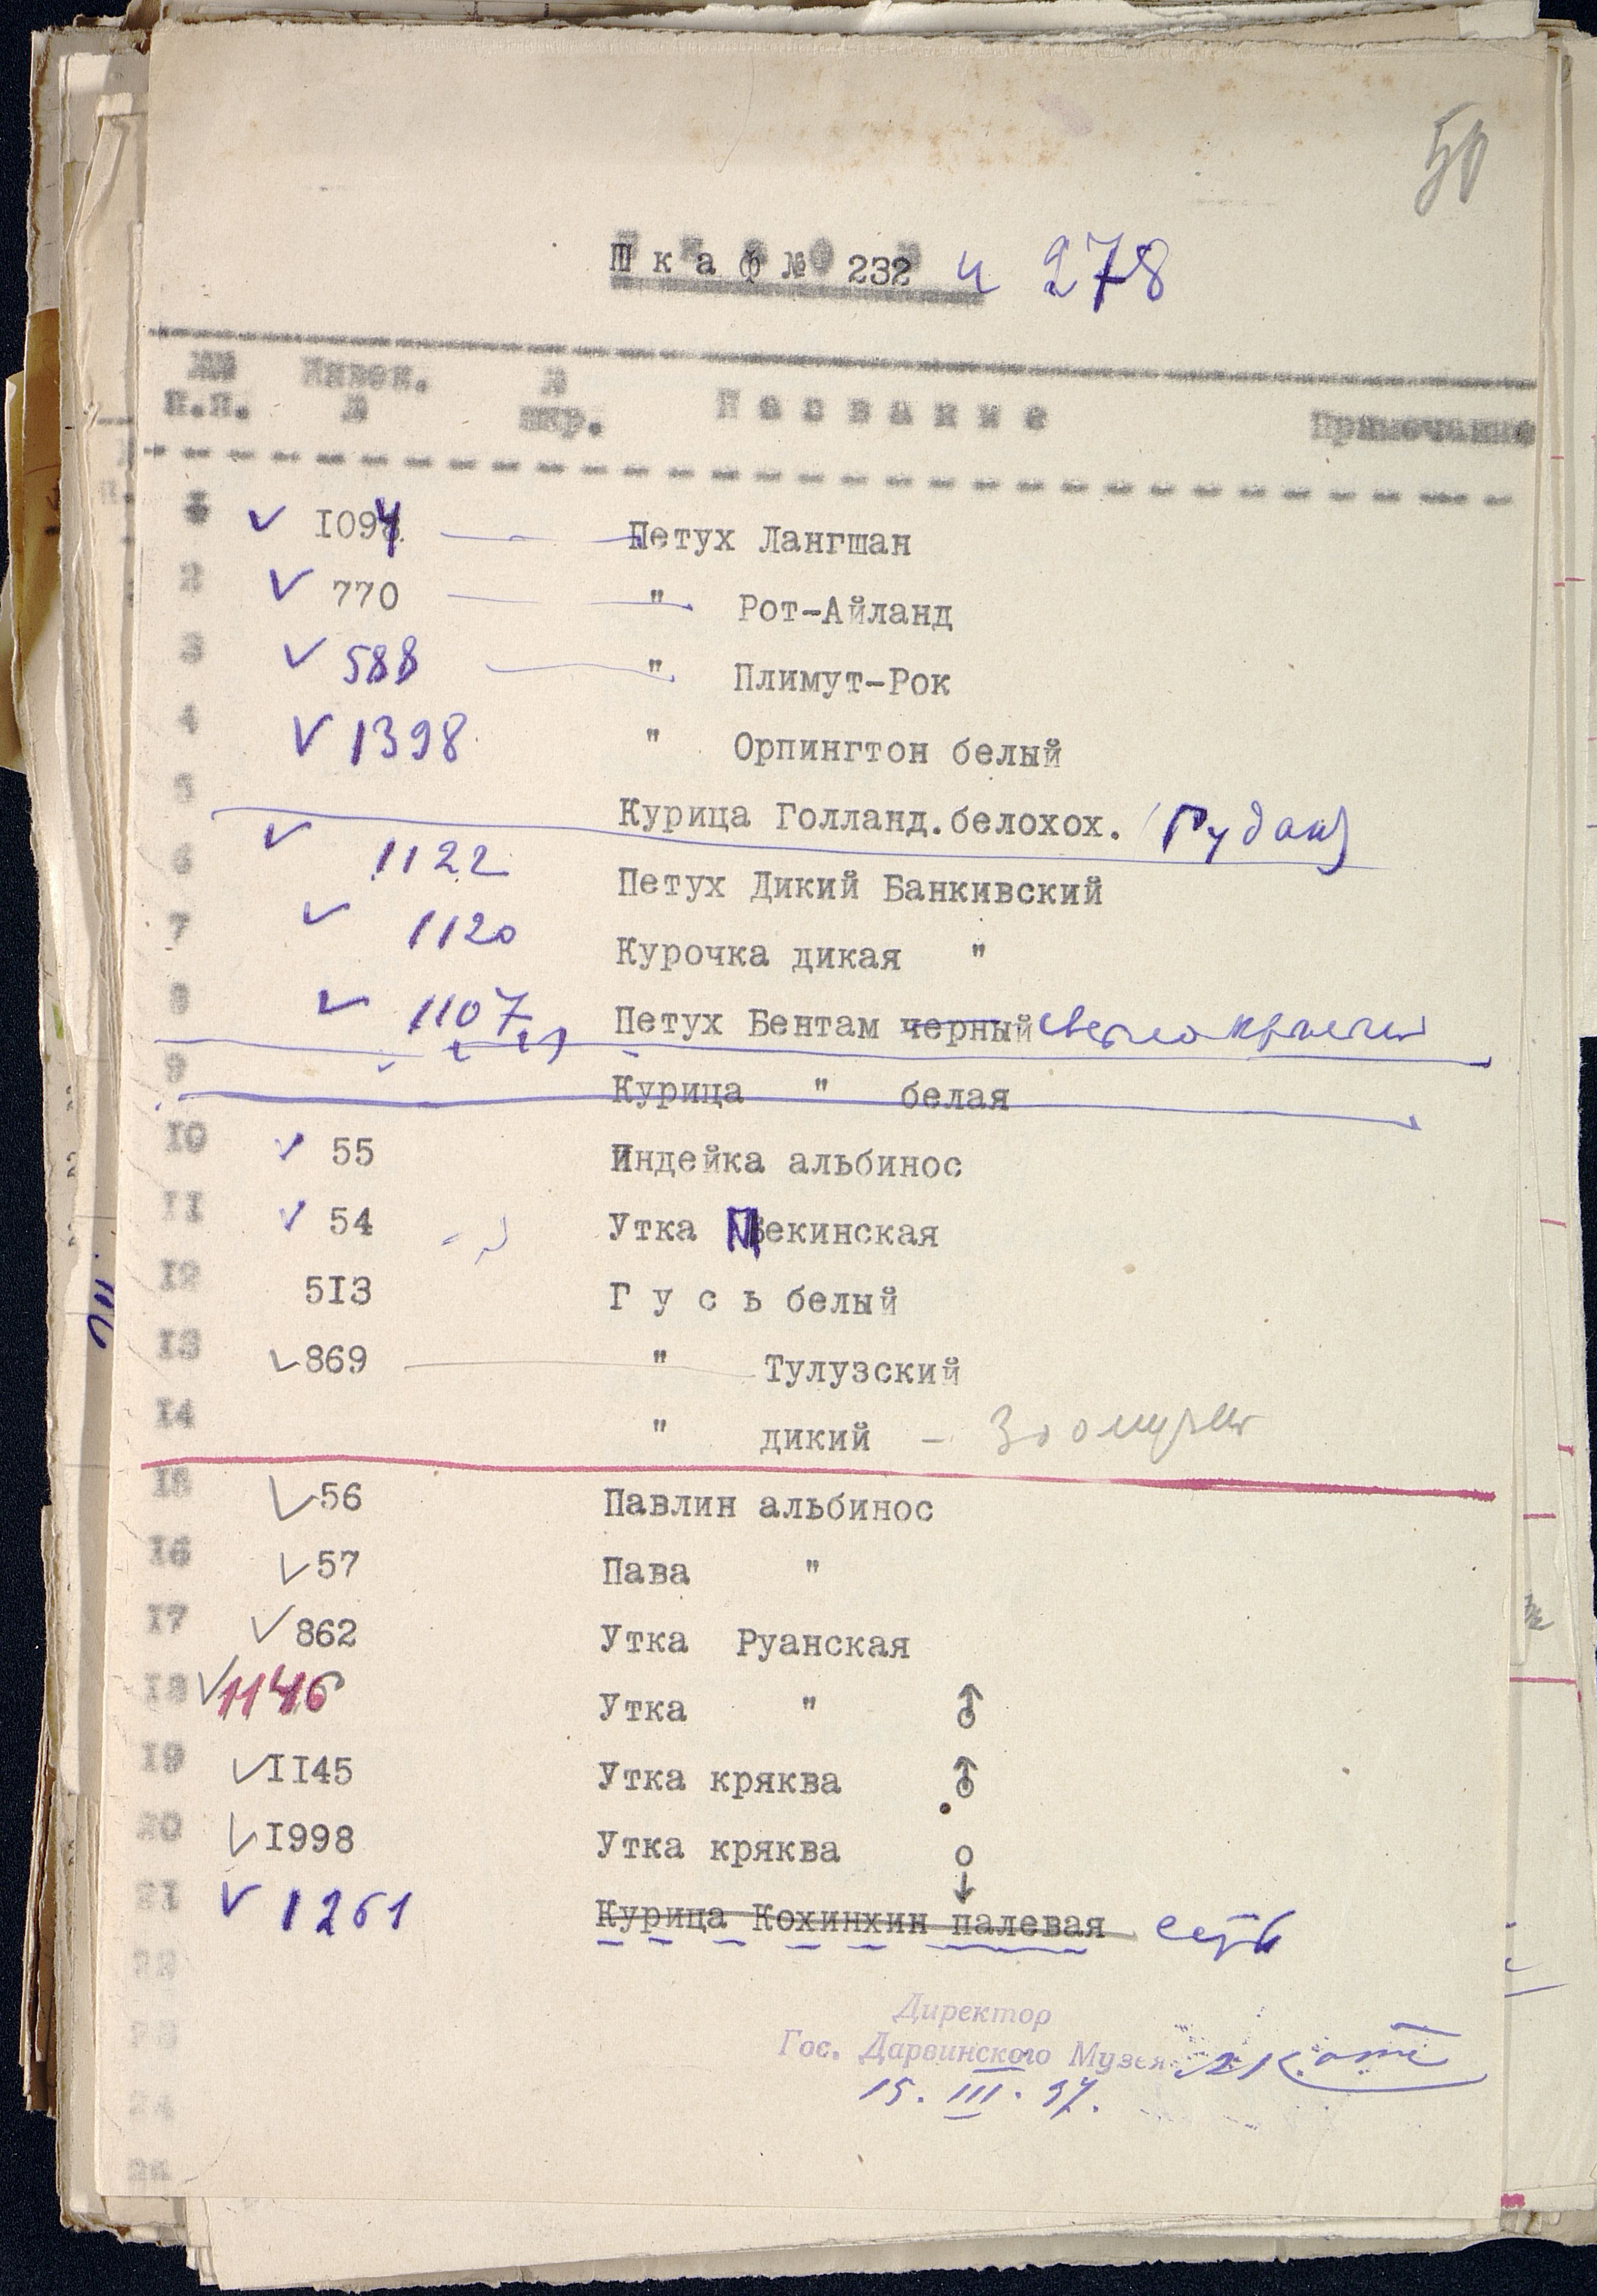 50
Шкаф № 232 и 278
№№ п.п. Инвен. № № шкр. Название Примечание
1 ✓ 1094 Петух Лангшан
2 ✓ 770 " Рот-Айланд
3 ✓ 588 " Плимут-Рок
4 ✓ 1398 " Орпингтон белый
5 Курица Голланд.белохох. (Гудан)
6 ✓ 1122 Петух Дикий Банкивский
7 ✓ 1120 Курочка дикая "
8 ✓ 1107 Петух Бентам черный
9 Курица " белая
10 ✓ 55 Индейка альбинос
11 ✓ 54 Утка Пекинская
12 513 Гусь белый
13 ✓ 869 " Тулузский
14 " дикий –
15 ✓ 56 Павлин альбинос
16 ✓ 57 Пава "
17 ✓ 862 Утка Руанская
18 ✓ 1146 Утка " ♂
19 ✓ 1145 Утка кряква ♂
20 ✓ 1998 Утка кряква ♀
21 ✓ 1261 Курица Кохинхин палевая есть
22
23
24
25
Директор
Гос. Дарвинского Музея
15. III. 37.